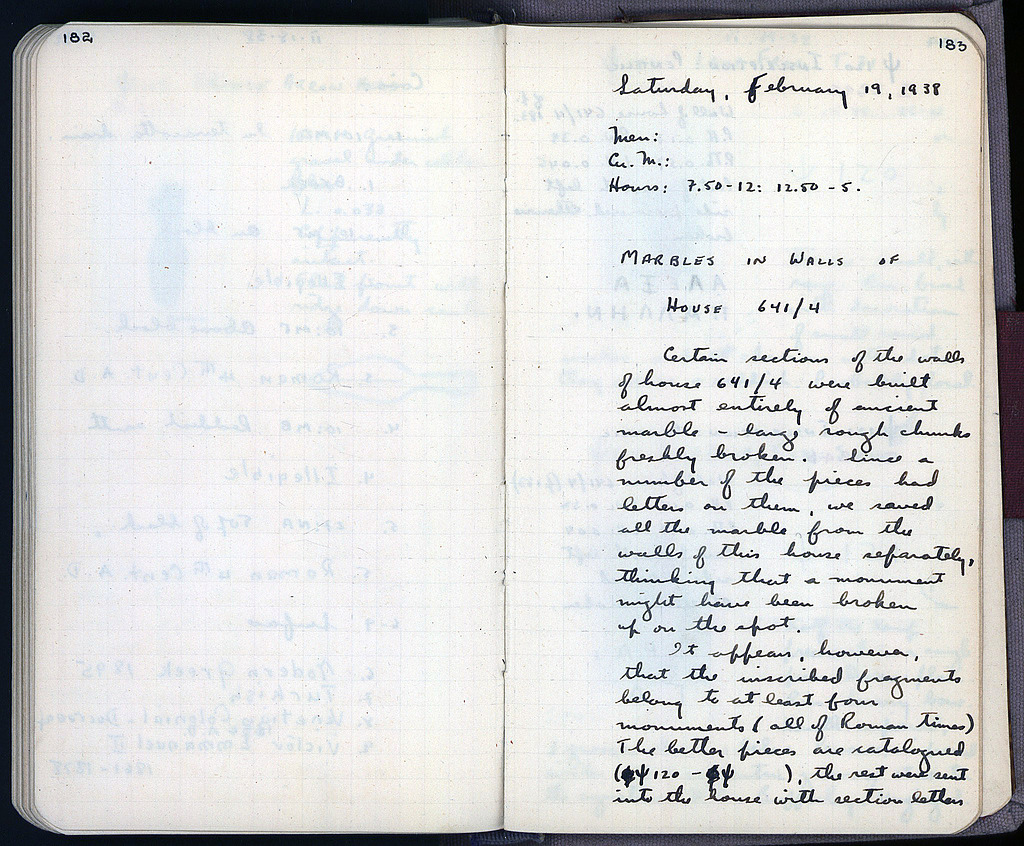 182
183
Saturday, February 19, 1938
Men:
Cu. M.:
Hours: 7.50-12: 12.50-5.
MARBLES IN WALLS OF
HOUSE 641/4
Certain sections of the walls
of house 641/4 were built
almost entirely of ancient
marble - large rough chunks
freshly broken. Since a
number of the pieces had
letters on them, we saved
all the marble from the
walls of this house separately,
thinking that a monument
might have been broken
up on the spot.
It appears, however,
that the inscribed fragments
belong to at least four
monuments (all of Roman times)
The better pieces are catalogued
(ψ 120 - ψ ), the rest were sent
into the house with section letters